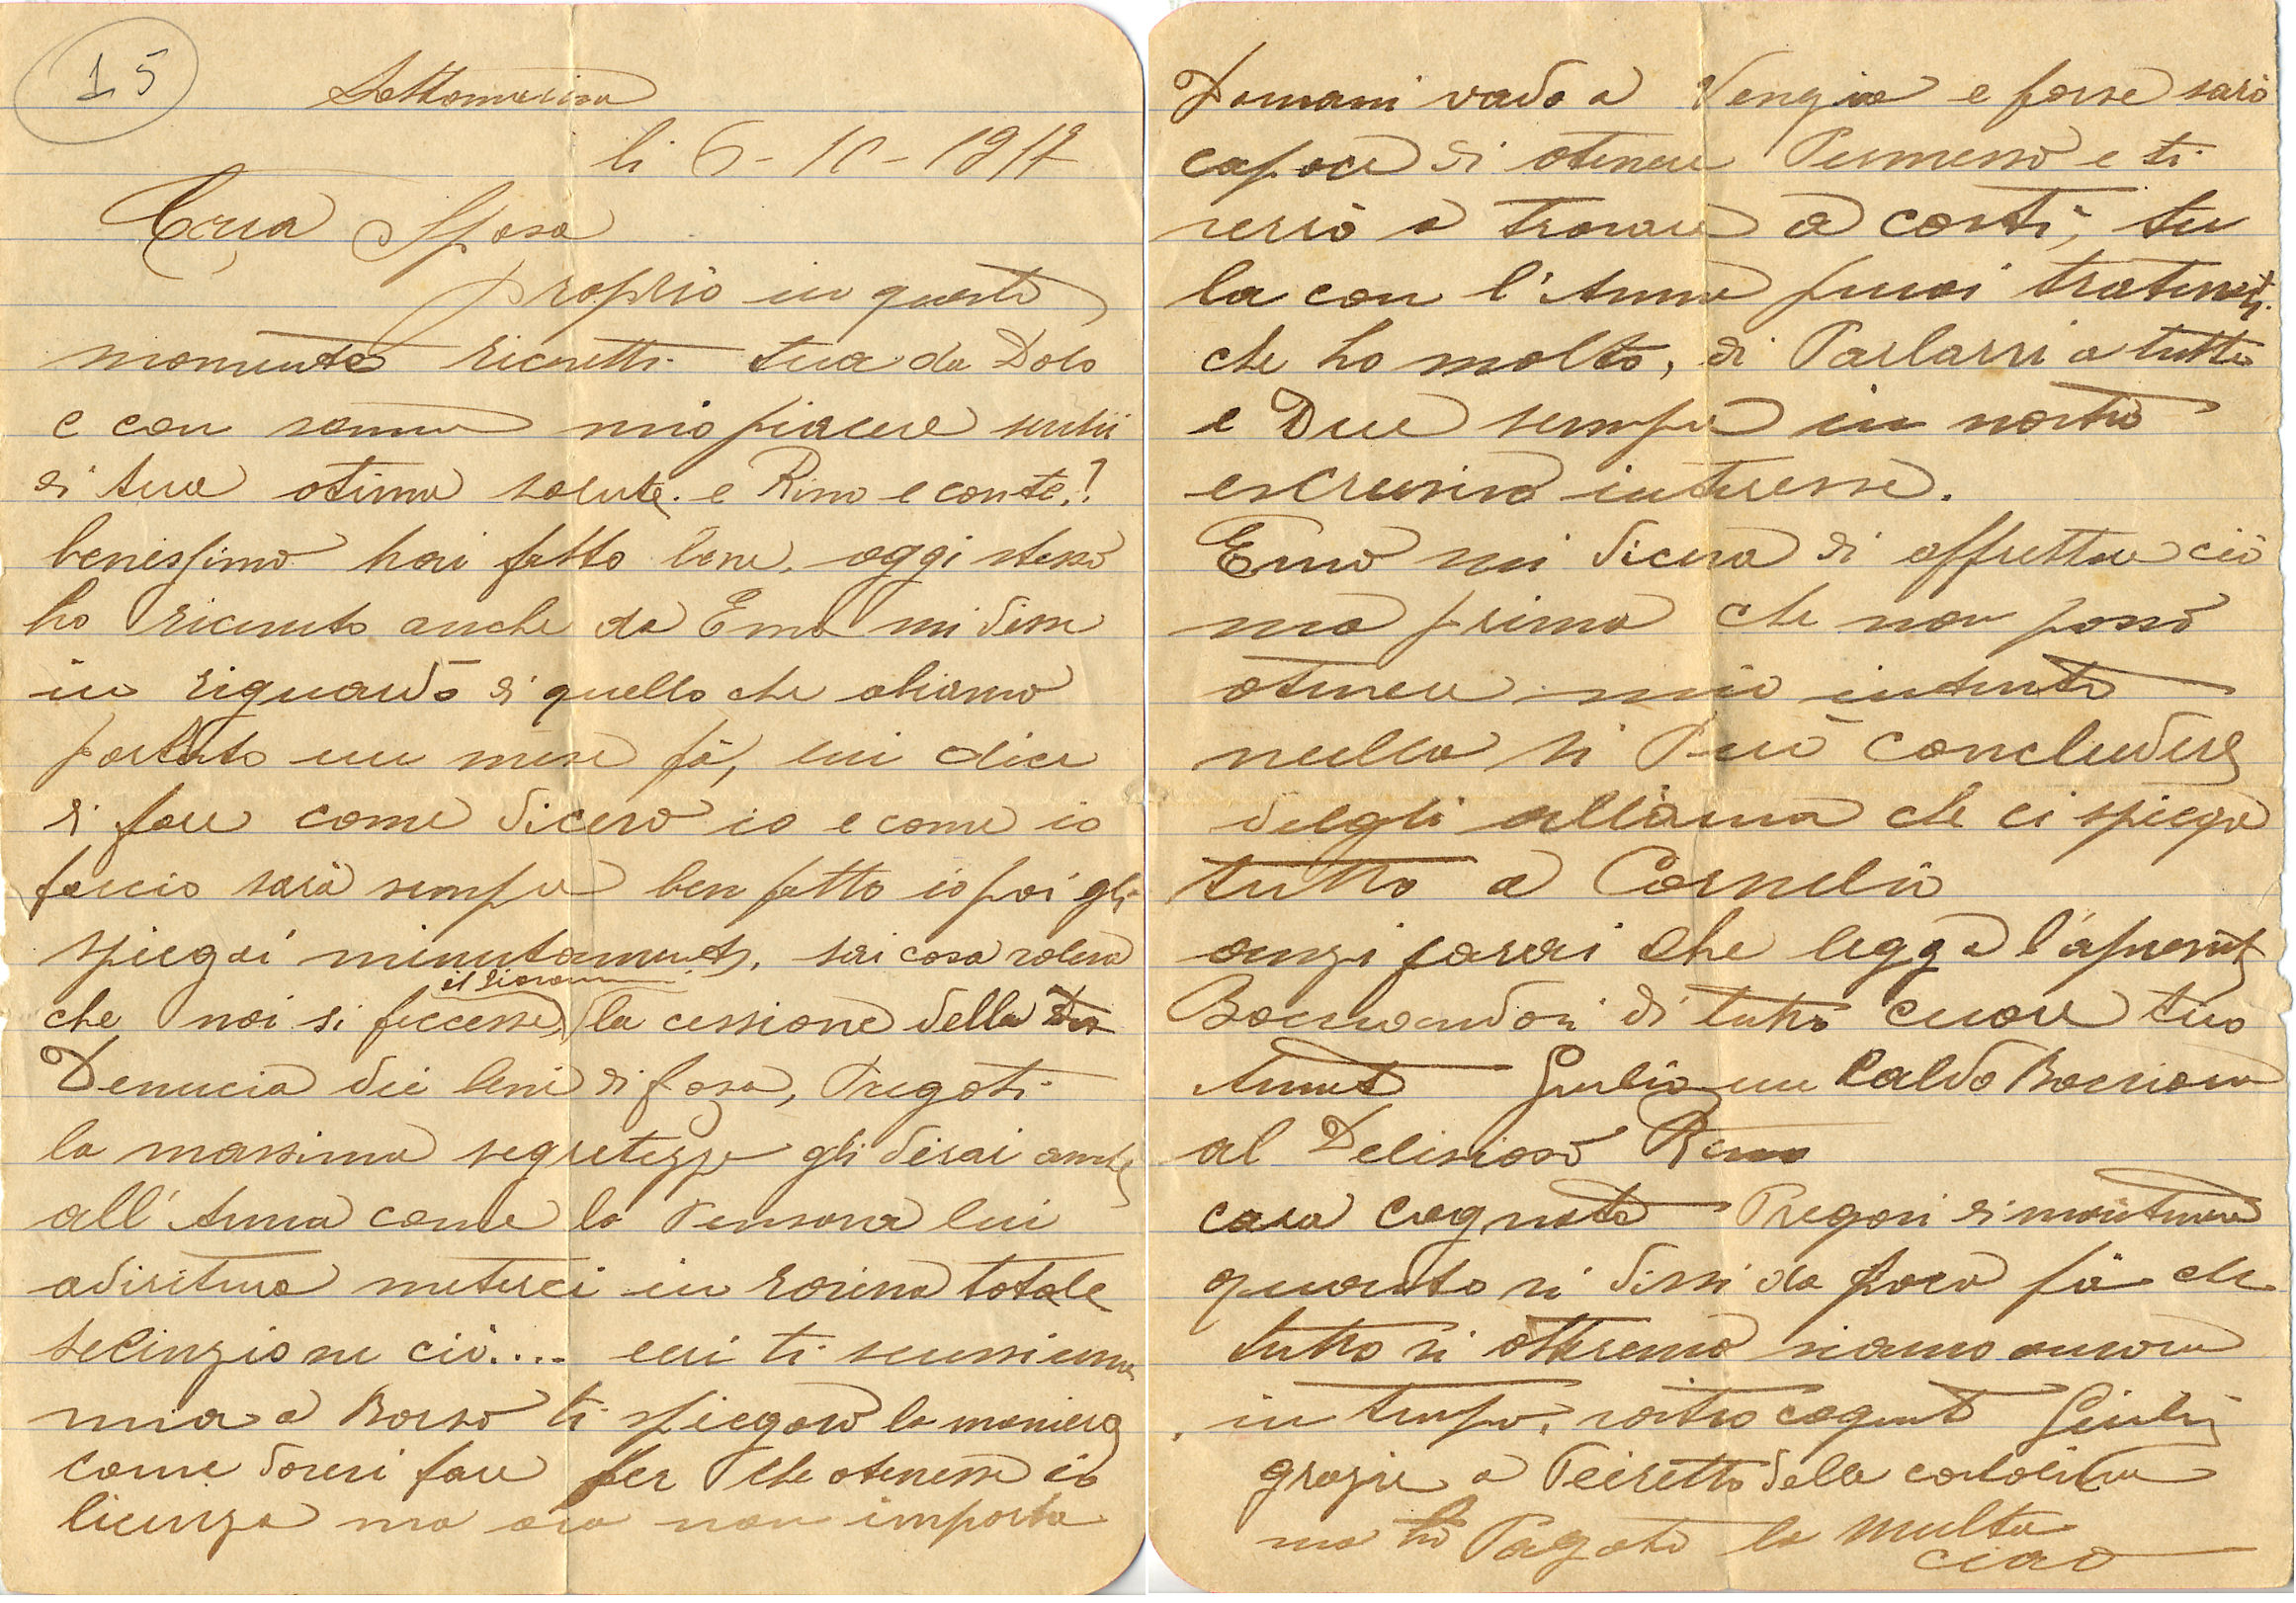 15
Sottomarina
li 6 - 10 - 1917
Cara Sposa
proprio in questo
momento ricevetti tua da Dolo
e con sommo mio piacere sentii
di tua otima salute. e Rino e conte?!
benissimo hai fatto bene, oggi stesso
ho ricevuto anche da Emo mi disse
in riguardo di quello che abiamo
parlato un mese fà, lui dice
di fare come dicevo io e come io
faccio sarà sempre ben fatto io poi gli
spiegai minutamente. sai cosa voleva
che noi si feccesse la cessione della
Denucia dei beni di fosa, Pregoti
la massima segretezza gli dirai anche
all'Anna come la Pensava lui
adiritura meterci in rovina totale
ciò.... cui ti
mia a Borso ti spiegavo la maniera
come dovevi fare per che otenesse io
licenza ma ora non importa
Domani vado a Venezia e forse sarò
capace di otenere Permesso e ti
verrò a trovare a costì, tu
la con l'Anna puoi
che ho molto, di Parlarvi a tutte
e Due sempre in nostro
esclusivo interesse.
Emo mi diceva di affrettare ciò
ma prima che non posso
otenere mio intento
nulla si Può concludere
all'Anna che ci spiega
tutto a Cornelio
anzi farai che legga l'apresente
Baciandovi di tutto cuore tuo
Amato Giulio un Caldo Bacione
al Delisioso Remo
cara cognata Pregovi di mantenere
quanto vi dissi da poco fà che
tutto si otteremo siamo ancora
in tempo. vostro cognato Giulio
grazie a Peiretto della cartolina
ma ho Pagato la multa
ciao